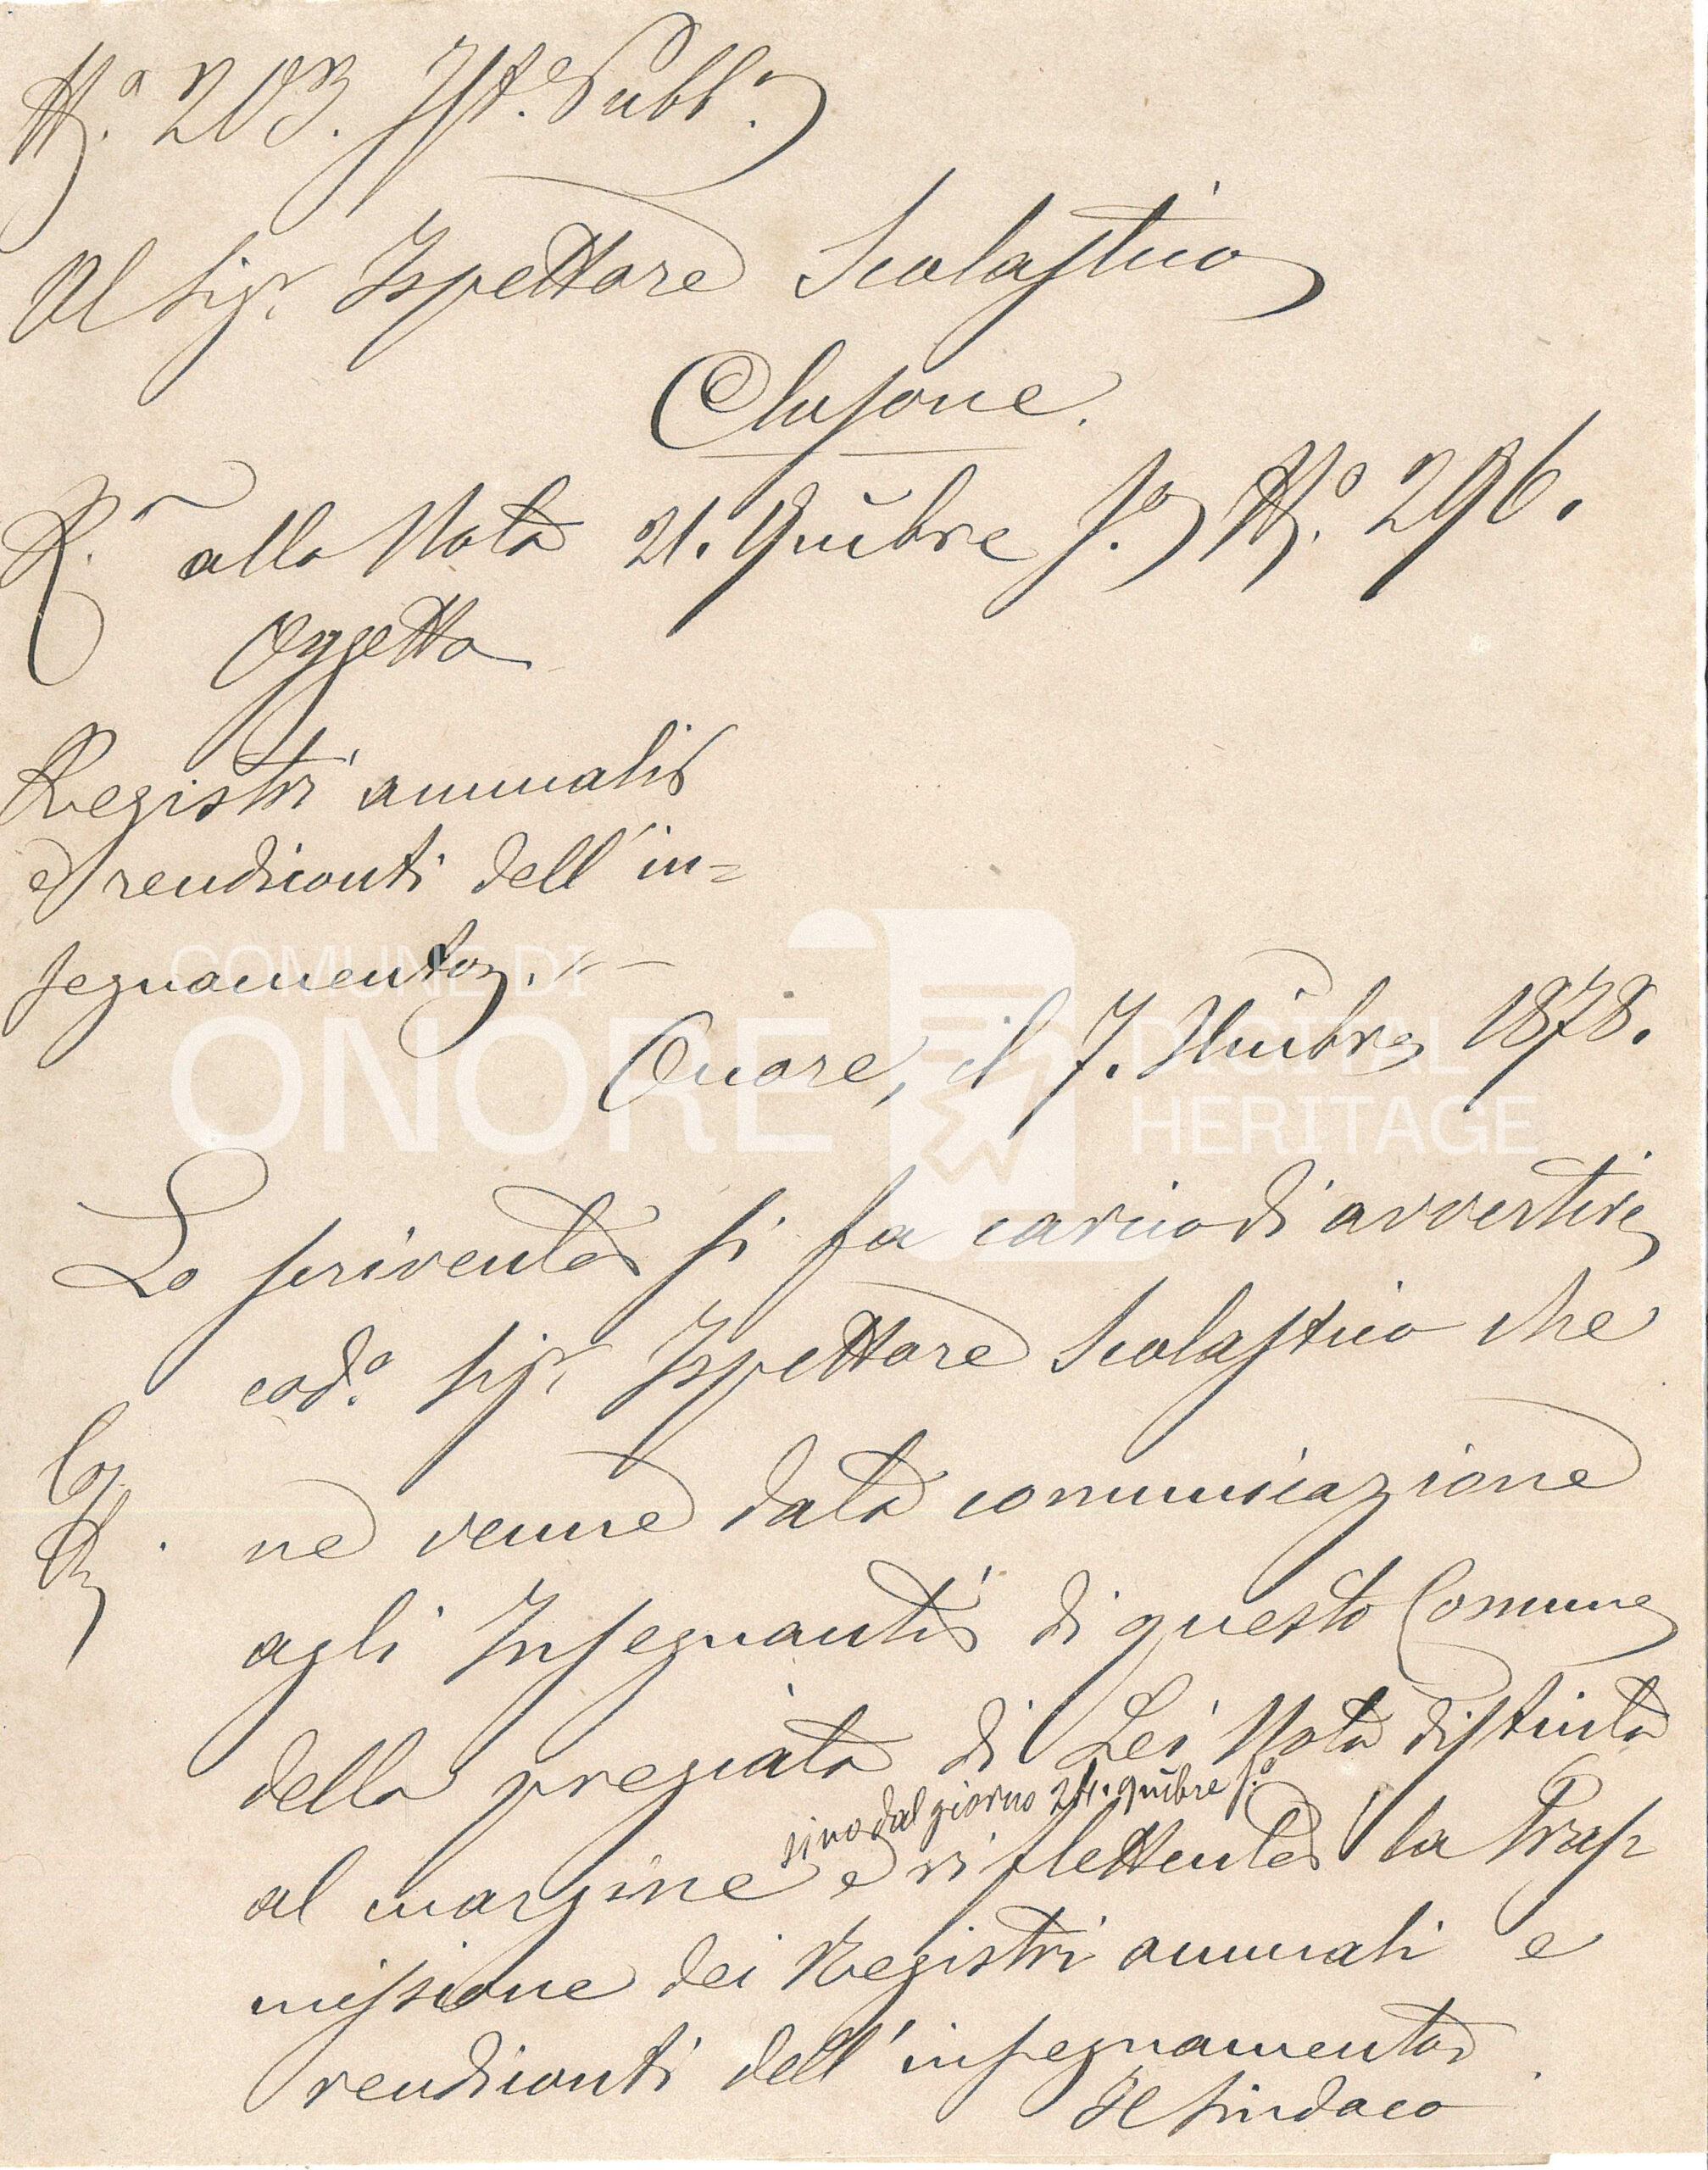 N.º 203. Ist.e Pubb.a
Al Sig.r Ispettore Scolastico
Clusone.
R.a alla Nota 21. 9mbre s.º N.º 296.
Oggetto
Registri annuali
e rendiconti dell'in=
segnamento.
COMUNE DI
ONORE
DIGITAL
HERITAGE
Onore, il 7. Xmbre 1878.
Lo scrivente si fa carico di avvertire
cod.º Sig.r Ispettore Scolastico che
ne venne data comunicazione
agli Insegnanti di questo Comune
della pregiata di Lei Nota distinta
sino dal giorno 24. 9mbre s.º
al margine e riflettente la Tras
missione dei Registri annuali e
rendiconti dell'insegnamento
Il Sindaco